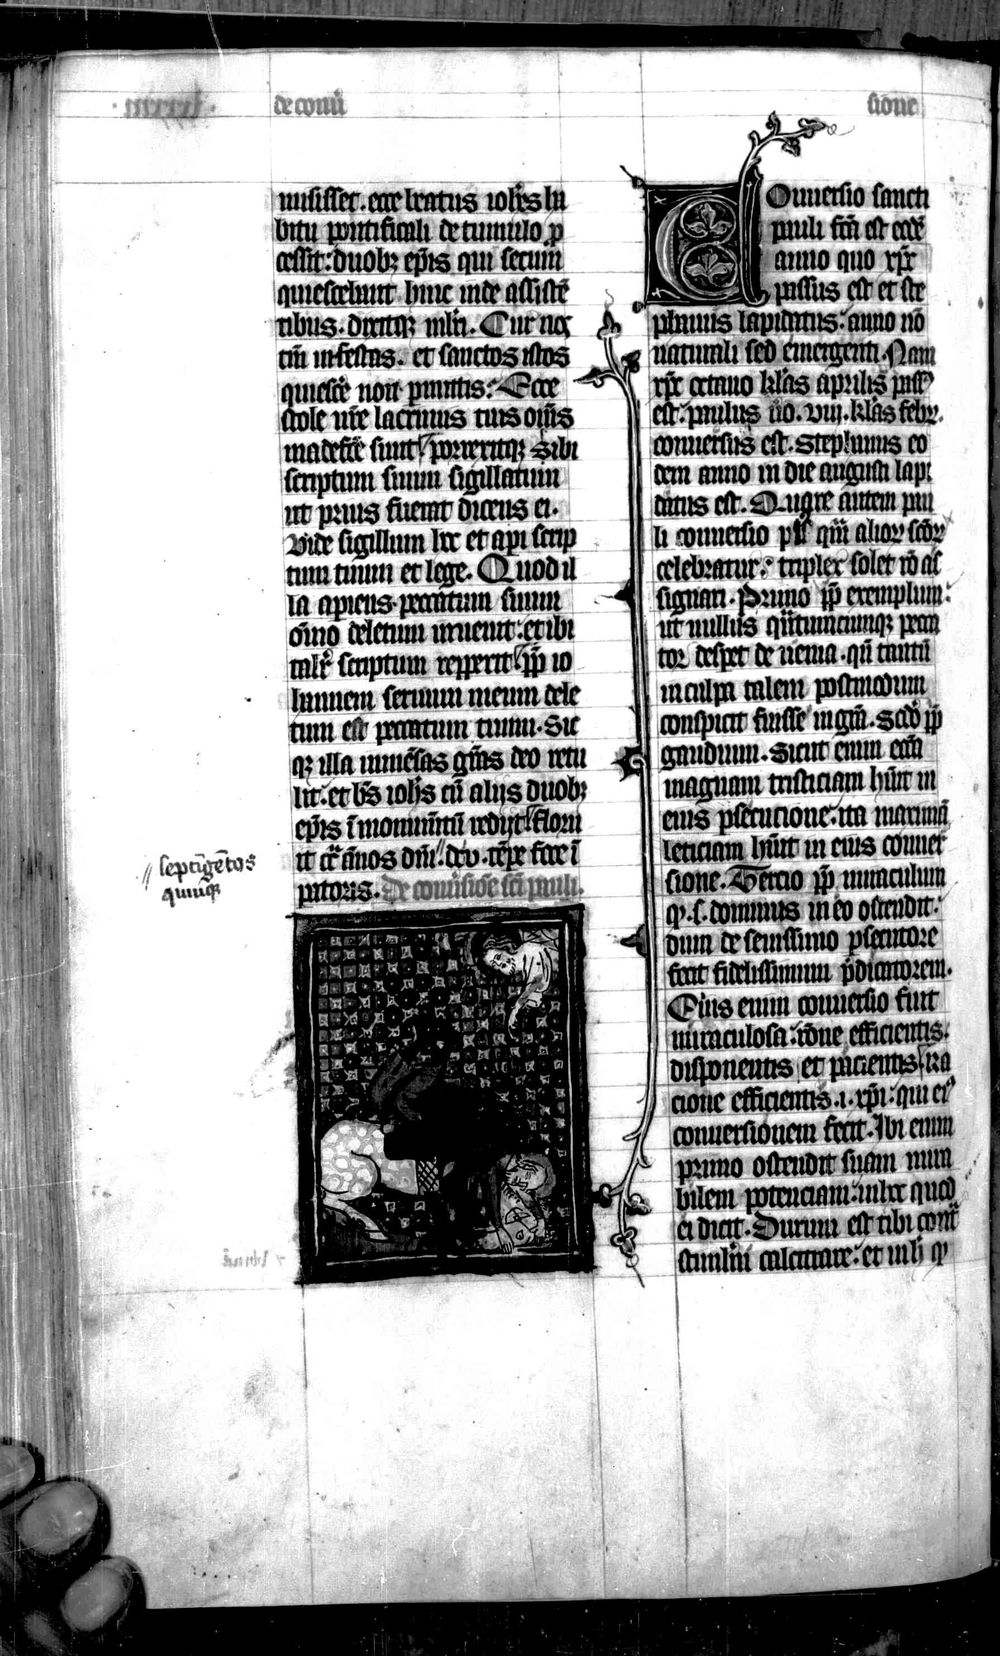 de conũ
sione
misisset. ecce beatus ioħes ha
bitu pontificali de tumulo p
cessit: duobꝫ ep̃is qui secum
quiescebant hinc inde assistẽ
tibus. dixitqꝫ ml̃ri. Cur nos
tm̃ infestas. et sanctos istos
quiesce̾ non pmittis: Ecce
stole nr̃e lacrimis tuis oĩis
madefc̃e sunt: porrexitqꝫ sibi
scriptum suum sigillatum
ut prius fuerat dicens ei.
Vide sigillum hoc et api scrip
tum tuum et lege. Quod il
la apiens. peccatum suum
oĩno deletum inuenit: et ibi
tale̾ scriptum repperit: pp̃ io
hannem seruum meum dele
tum est peccatum tuum. Sic
qꝫ illa immẽsas gr̃as deo retu
lit: et bt̃s ioħes cũ alijs duobꝫ
ep̃is ĩ monumtũ redijt: floru
it cir̃ ãnos dñi. dcv. tẽpe foce ĩ
patoris. De conũsiõe sc̃i pauli.
septigẽtos
quinqꝫ
Conuersio sancti
pauli fc̃a est eodẽ
anno quo xp̃c
passus est et ste
phanus lapidatus: anno nõ
naturali sed emergenti. Nam
xp̃c octauo kl̃as aprilis pass9
est. paulus ũo. viij. kl̃as febr.
conuersus est. Stephanus eo
dem anno in die augusti lapi
datus est. Quare autem pau
li conuersio pl9 qm̃ alioꝝ sc̃oꝝ
celebratur: triplex solet rõ as
signari. Primo pp̃ exemplum:
ut nullus qũtumcumqꝫ pecca
tor despet de uenia. qñ tantũ
in culpa talem postmodum
conspicit fuisse in gr̃a. Scd̾o pp̃
gaudium. Sicut enim ecc̃a
magnam tristiciam hũit in
eius psecucione: ita maximã
leticiam hũit in eius conuer
sione. Tercio pp̃ miraculum
qꝫ .s. dominus in eo ostendit:
dum de seuissimo psecutore
fecit fidelissimum p̃dicatorem.
Eius enim conuersio fuit
miraculosa: rõne efficientis.
disponentis et pacientis: Ra
cione efficientis .i. xp̃i: qui ei9
conuersionem fecit. Ibi enim
primo ostendit suam mira
bilem potenciam: in hoc quod
ei dixit. Durum est tibi contˢ
stimlm̃ calcitrare: et in hͦ qꝫ